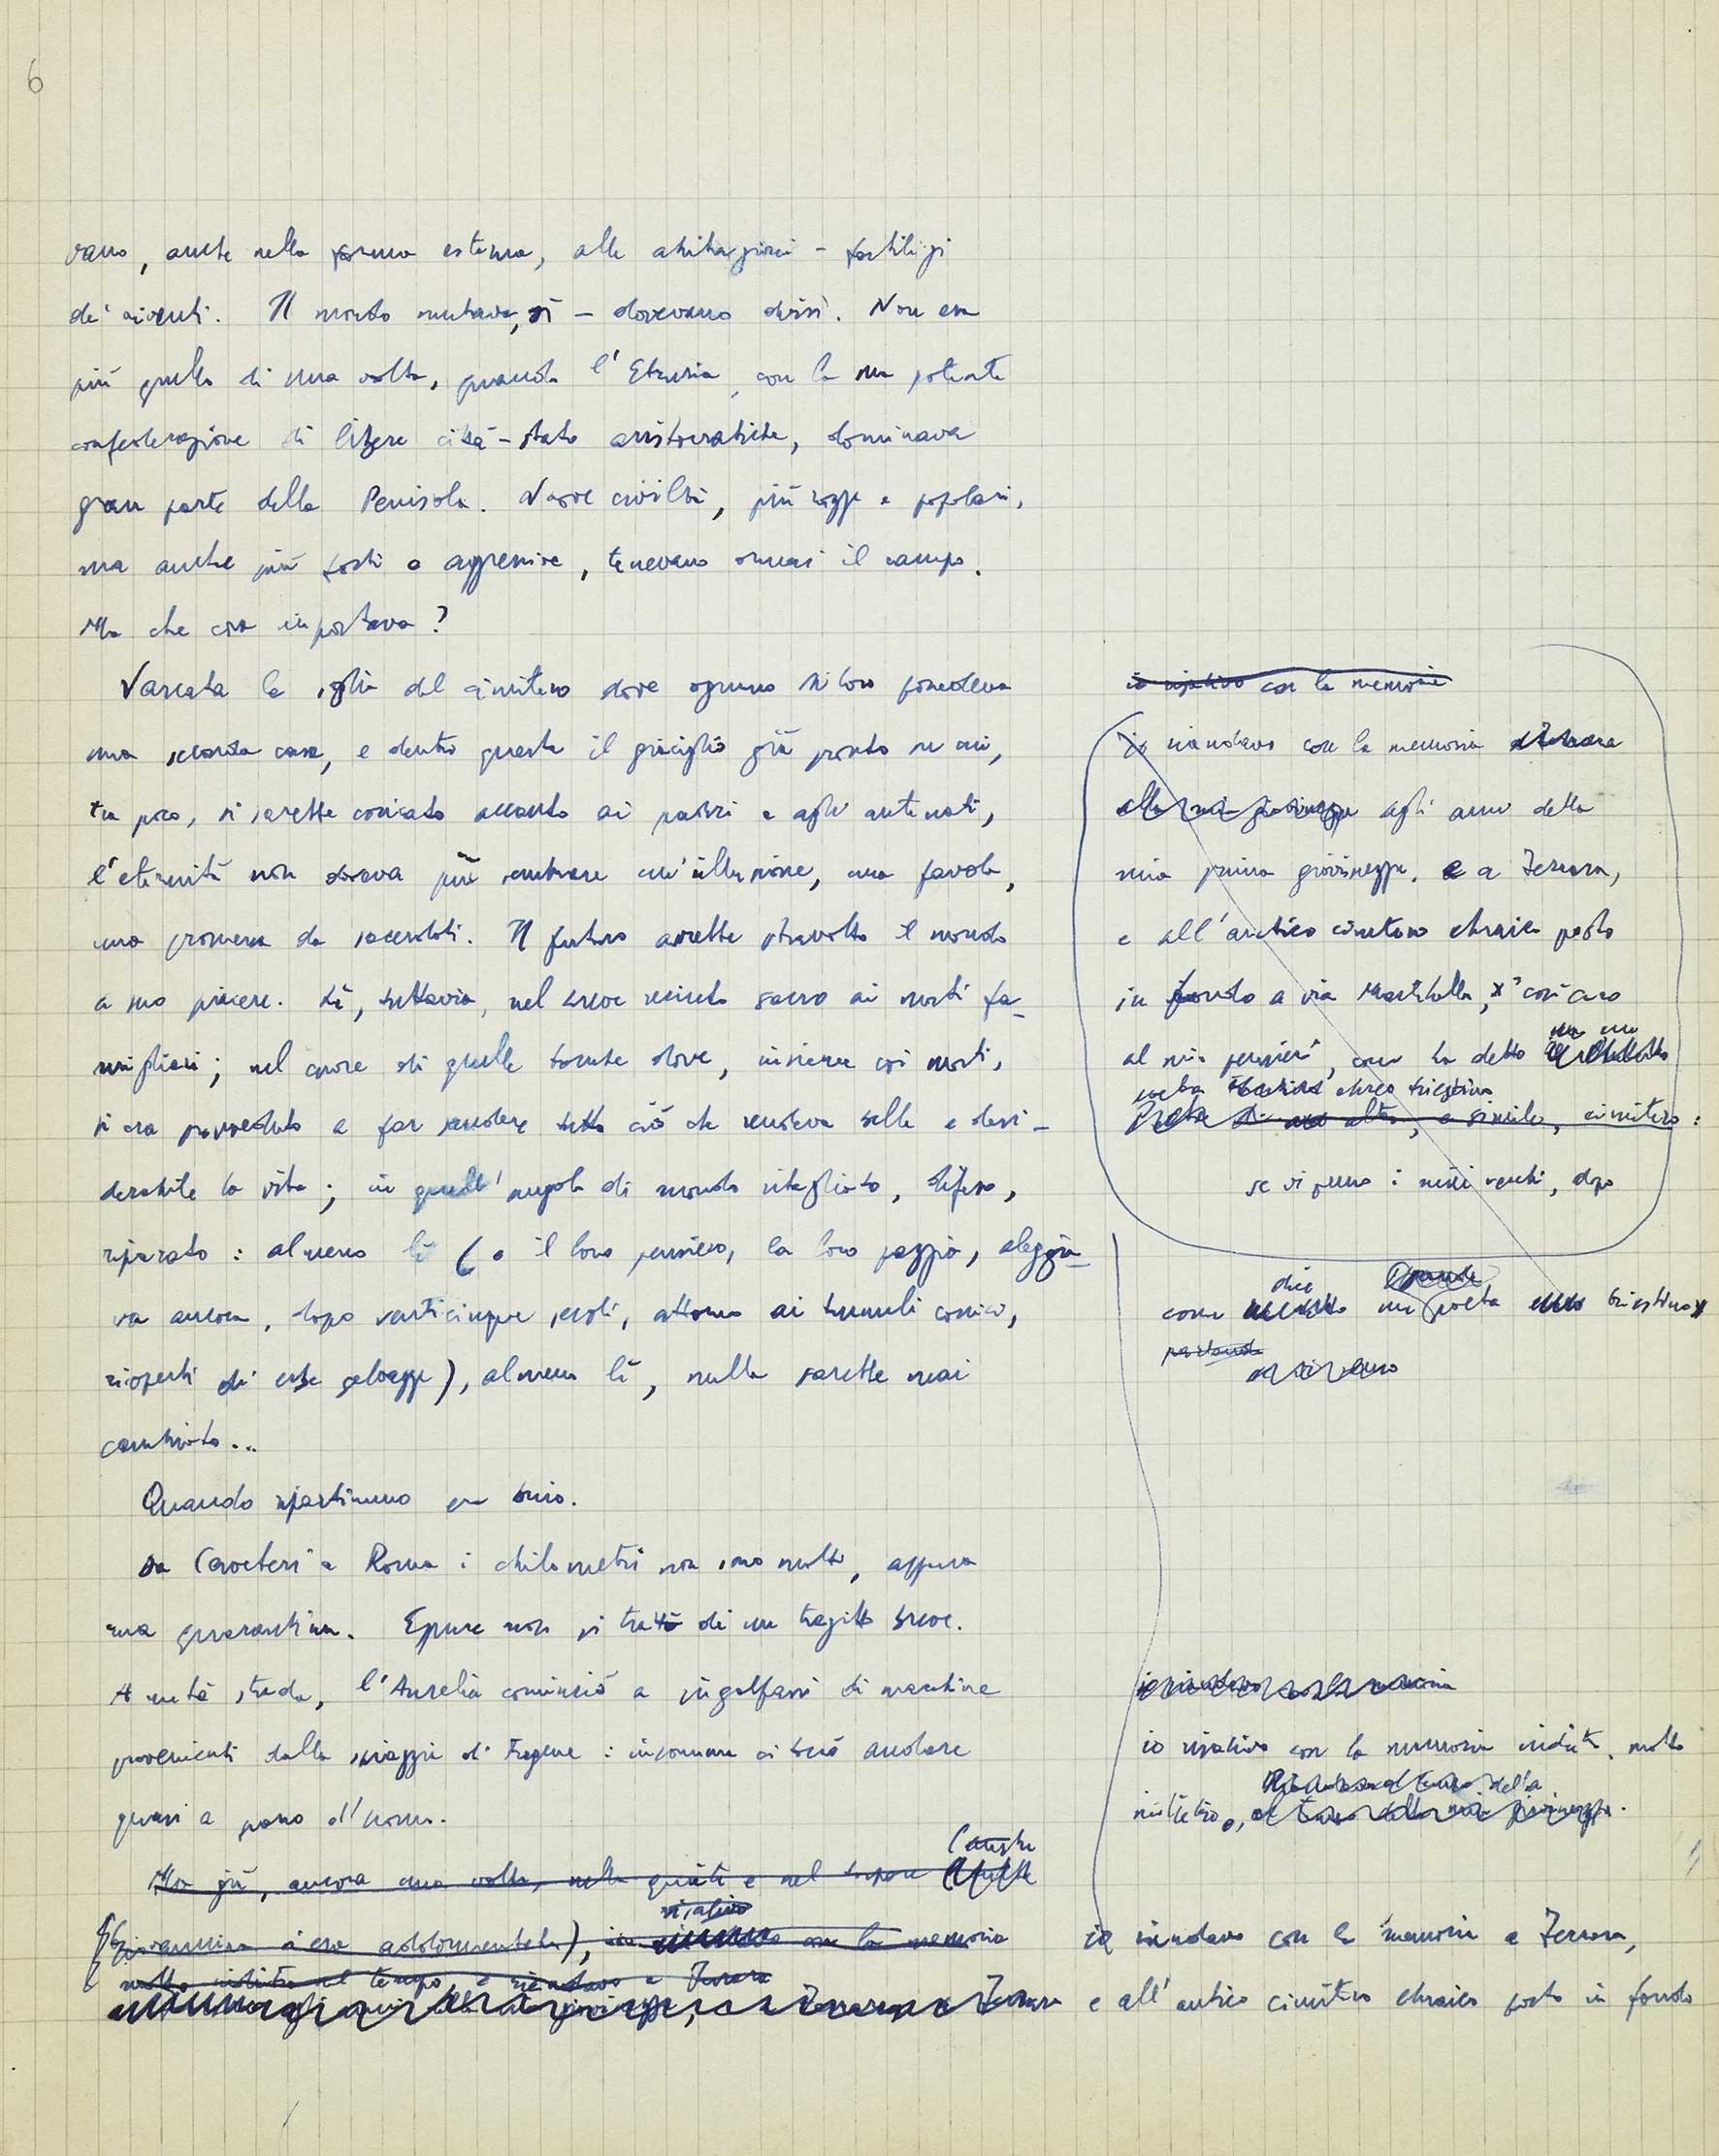 6
vano, anche nella forma esterna, alle abitazioni - fortilizi
dei viventi. Il mondo mutava, sì - dovevano dirsi. Non era
più quello di una volta, quando l'Etruria, con la sua potente
confederazione di libere città-stato aristocratiche, dominava
gran parte della Penisola. Nuove civiltà, più rozze e popolari,
ma anche più forti e aggressive, tenevano ormai il campo.
Ma che cosa importava?
Varcata la soglia del cimitero dove ognuno di loro possedeva
una seconda casa, e dentro questa il giaciglio già pronto su cui,
tra poco, si sarebbe coricato accanto ai padri e agli antenati,
l'eternità non doveva più sembrare un'illusione, una favola,
una promessa da sacerdoti. Il futuro avrebbe stravolto il mondo
a suo piacere. Lì, tuttavia, nel breve recinto sacro ai morti fa-
migliari; nel cuore di quelle tombe dove, insieme coi morti,
si era provveduto a far scendere tutto ciò che rendeva bella e desi-
derabile la vita; in quell'angolo di mondo ritagliato, difeso,
riparato: almeno lì (e il loro pensiero, la loro pazzia, aleggia-
va ancora, dopo venticinque secoli, attorno ai tumuli conici,
ricoperti di erbe selvagge), almeno lì, nulla sarebbe mai
cambiato...
Quando ripartimmo era buio.
Da Cerveteri a Roma i chilometri non sono molti, appena
una quarantina. Eppure non si trattò di un tragitto breve.
A metà strada, l'Aurelia cominciò a ingolfarsi di macchine
provenienti dalla spiaggia di Fregene: insomma ci toccò andare
quasi a passo d'uomo.
(anche
Ma già, ancora una volta, nella quiete e nel torpore
risalivo
Giannina si era addormentata), io con la memoria
molto indietro nel tempo, e riandavo a Ferrara
Ferrara
io risalivo con la memoria
io riandavo con la memoria
agli anni della
mia prima giovinezza, e a Ferrara,
e all'antico cimitero ebraico posto
in fondo a via Montebello, "così caro
al mio pensiero", come ha detto
ma un
poeta ebreo triestino
altro, e simile, cimitero:
se vi penso i miei vecchi, dopo
dice
come un poeta triestino
io risalivo con la memoria indietro, molto
della
indietro,
io riandavo con la memoria a Ferrara,
e all'antico cimitero ebraico posto in fondo